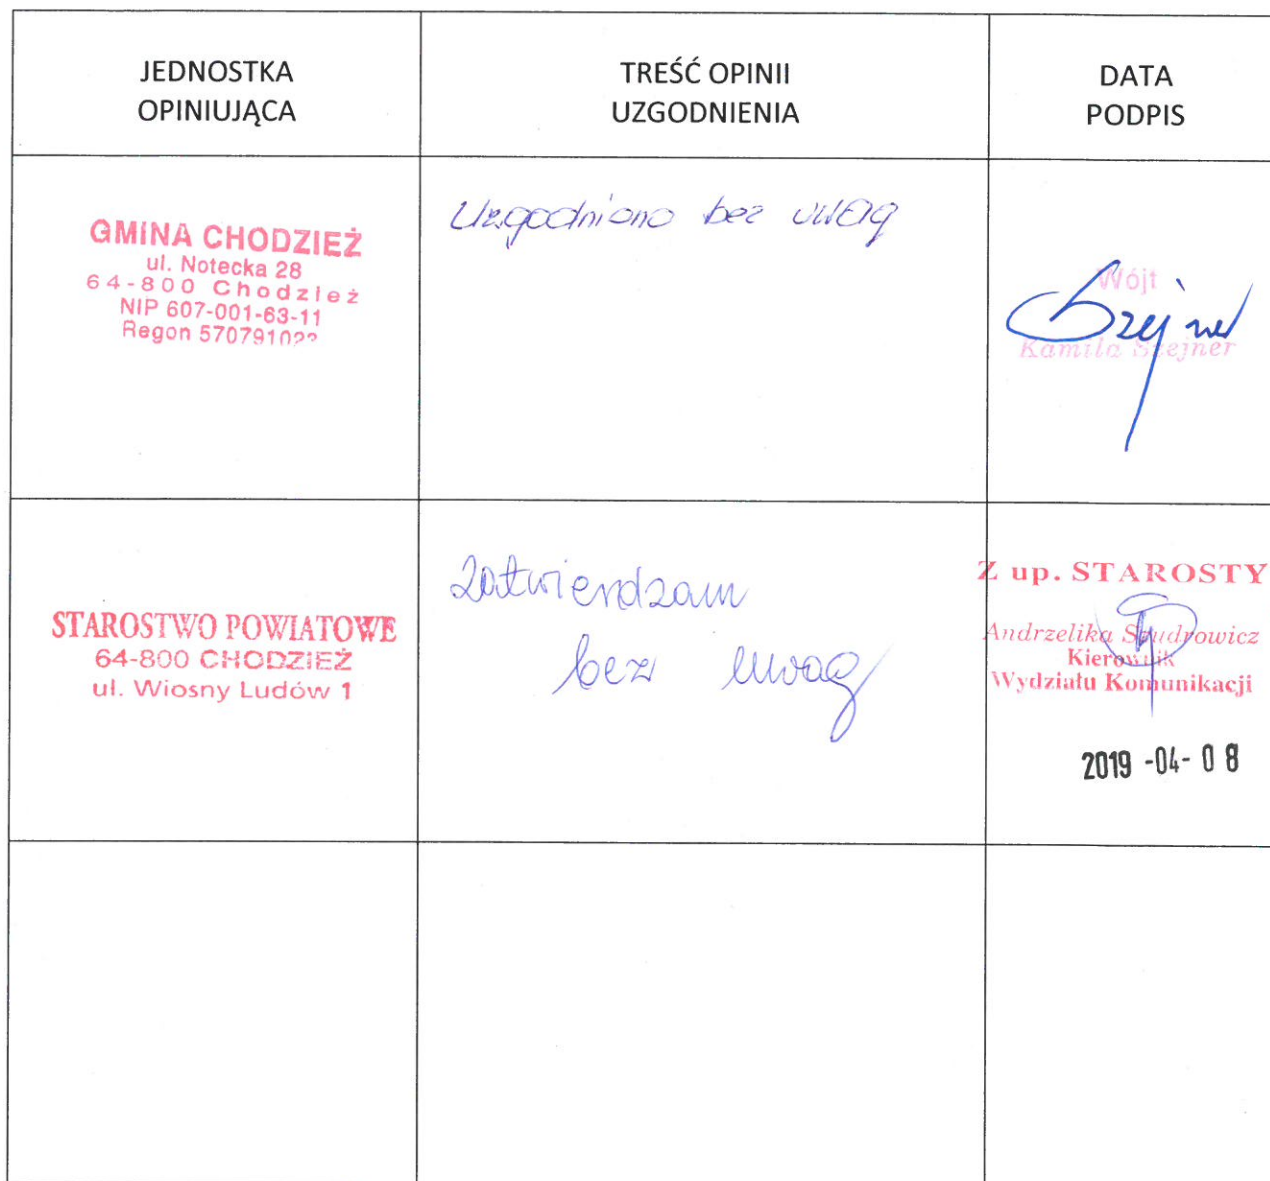 JEDNOSTKA
OPINIUJĄCA
TREŚĆ OPINII
UZGODNIENIA
DATA
PODPIS
GMINA CHODZIEŻ
ul. Notecka 28
64-800 Chodzież
NIP 607-001-63-11
Regon 570791022
Uzgodniono bez uwag
Wójt
Szejner
Kamila Szejner
STAROSTWO POWIATOWE
64-800 CHODZIEŻ
ul. Wiosny Ludów 1
Zatwierdzam
bez uwag
Z up. STAROSTY
Andrzelika
Kierownik
Wydziału Komunikacji
2019 -04- 0 8